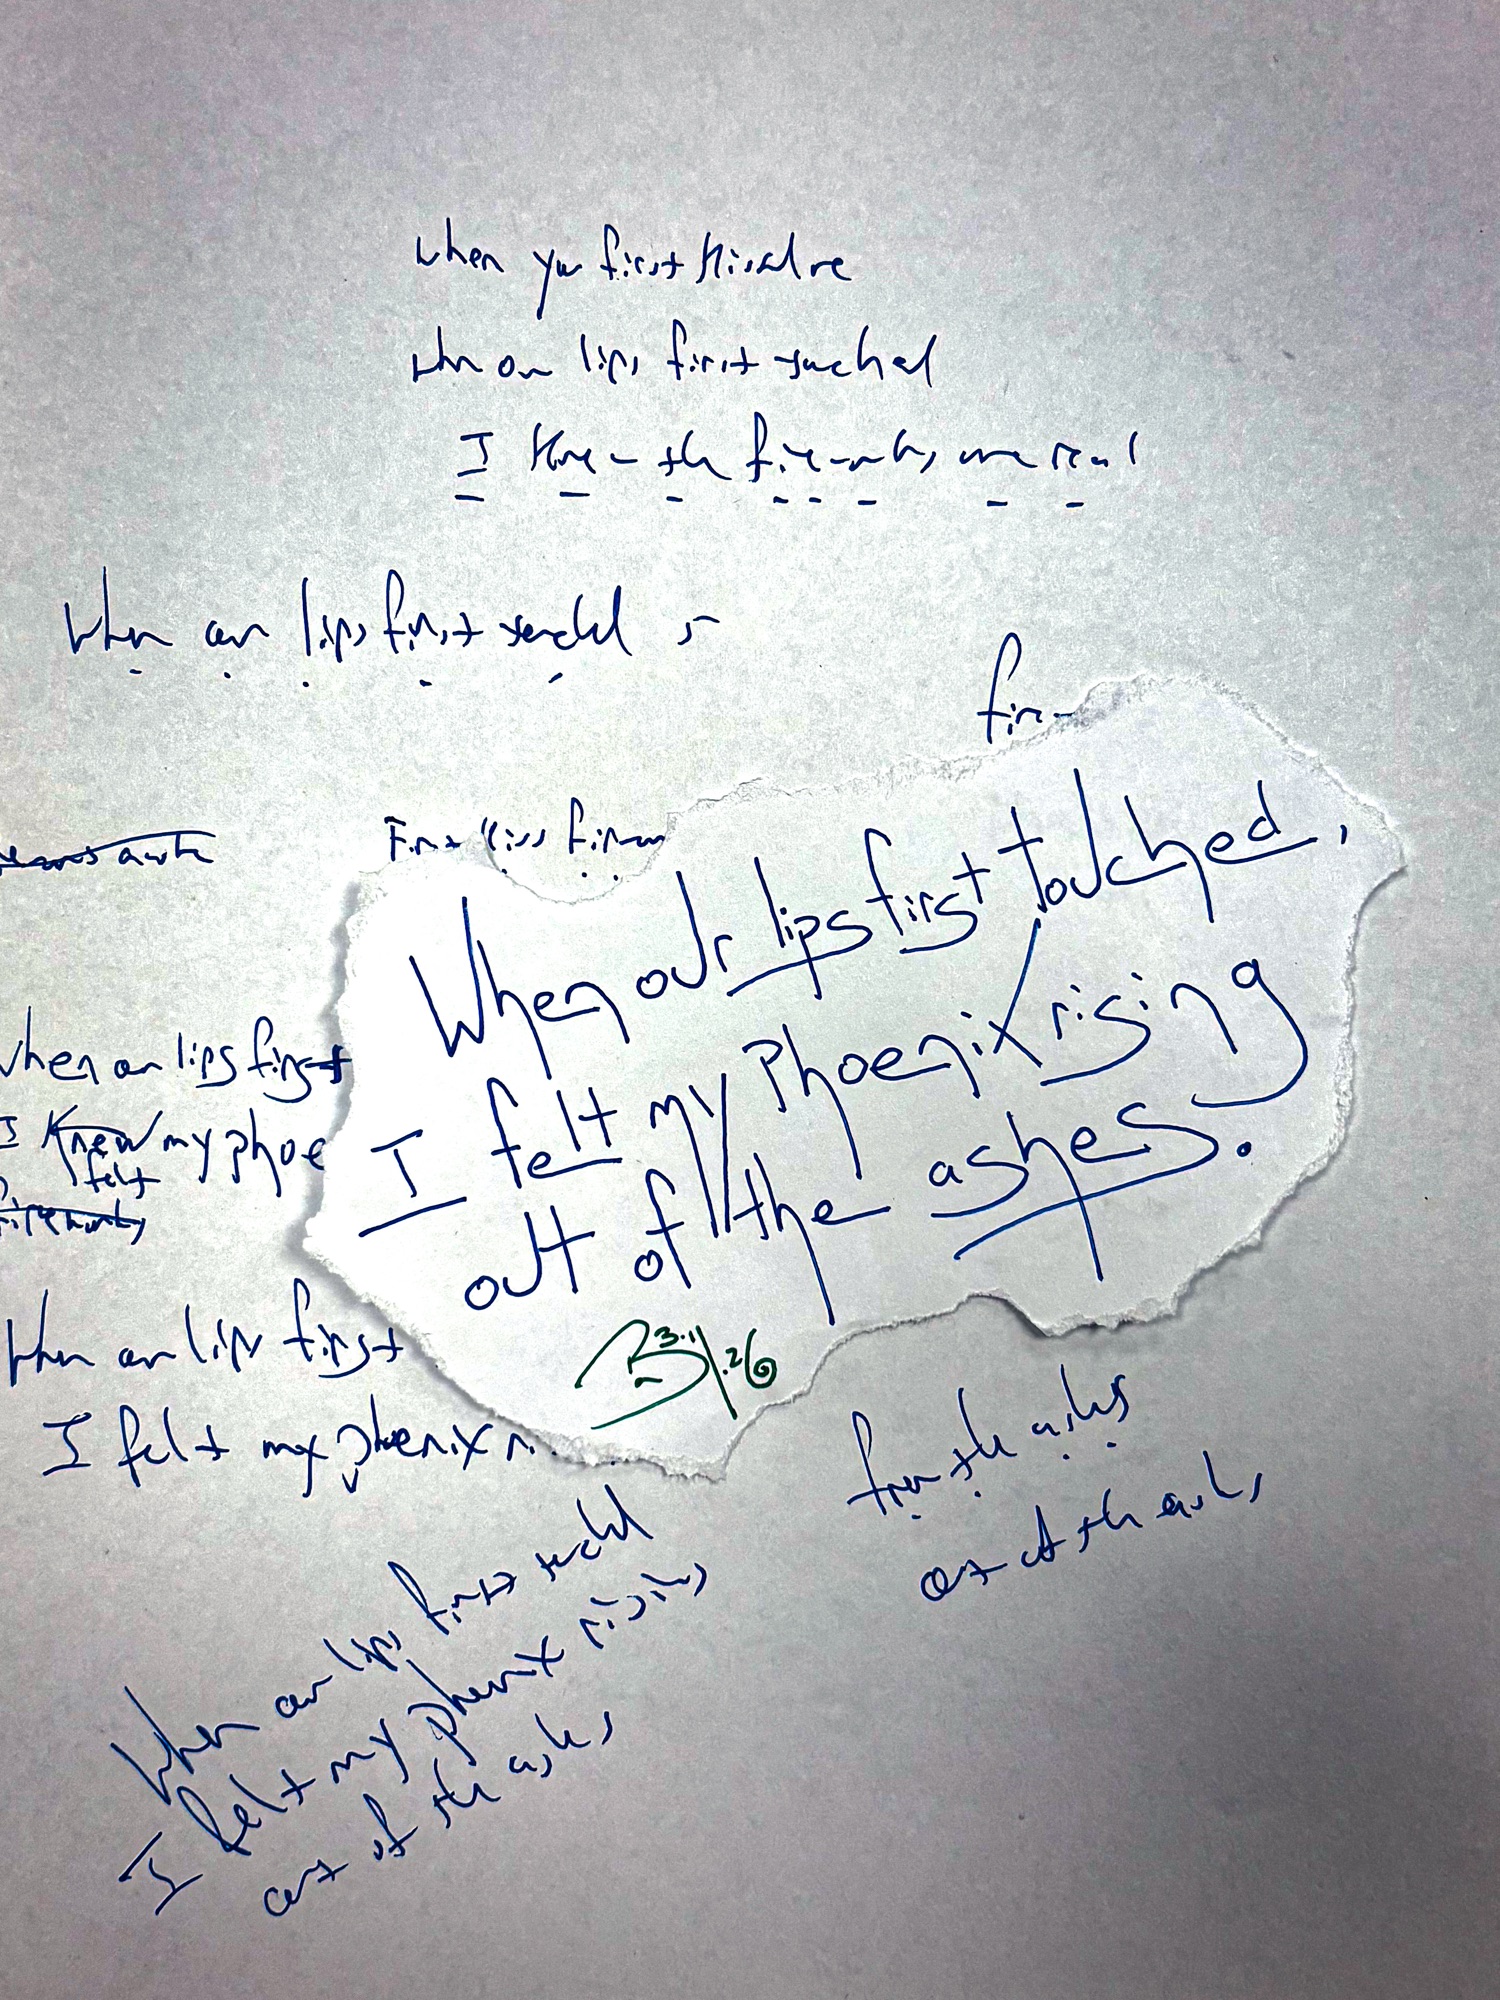 When you first kissed me
when our lips first touched
I knew the fireworks were real
When our lips first touched
fire
First kiss firew
When our lips first touched,
I felt my Phoenix rising
out of the ashes.
3.1.26
When our lips first
I knew my phoe
felt
fireworks
When our lips first
I felt my phoenix ri
from the ashes
out of the ashes
When our lips first touched
I felt my phoenix rising
out of the ashes